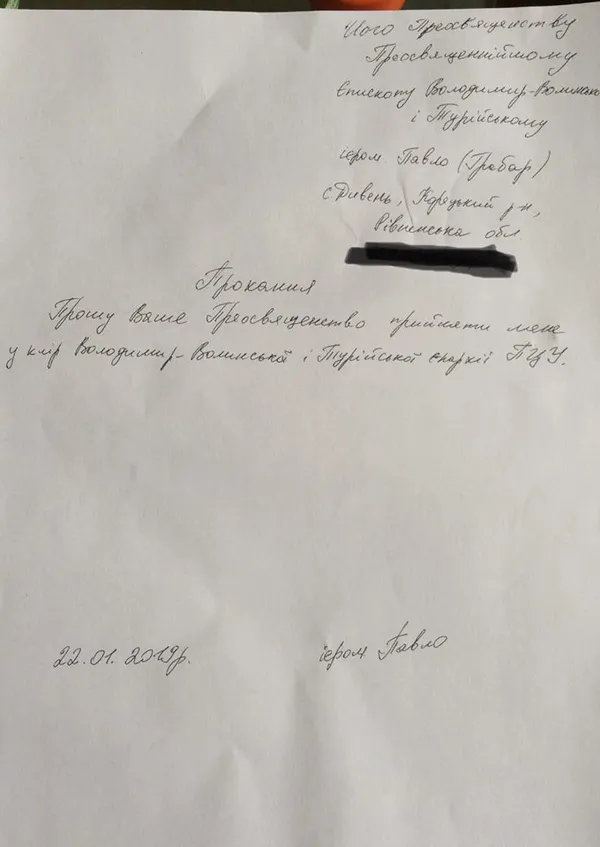 Його Преосвященству
Преосвященнійшому
Єпископу Володимир-Волинсько
і Турійському
ієром. Павло (Грабар)
с. Дивень, Корецький р-н,
Рівненська обл.
Прохання
Прошу Ваше Преосвященство прийняти мене
у клір Володимир-Волинської і Турійської єпархії ПЦУ.
22.01.2019р.
ієром. Павло